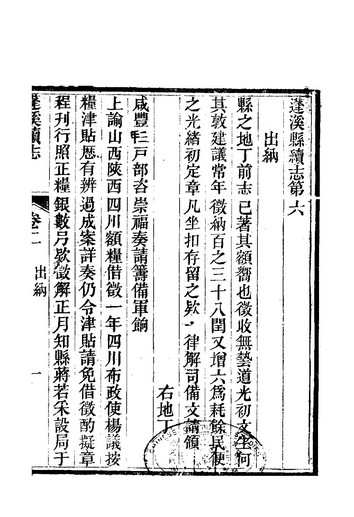 蓬溪縣續志第六
出納
縣之地丁前志已著其額嚮也徵收無藝道光初文生何
其敦建議常年徵納百之三十八閏又增六爲耗餘民便
之光緒初定章凡坐扣存留之欵一律解司備文請領
右地丁
咸豐三戸部咨崇福奏請籌備軍餉
上諭山西陝西四川額糧借徵一年四川布政使楊議按
糧津貼歴有辨過成案詳奏仍令津貼請免借徵酌擬章
程刊行照正糧銀數另欵徵解正月知縣蔣若采設局于
蓬溪續志
卷二
出納
一